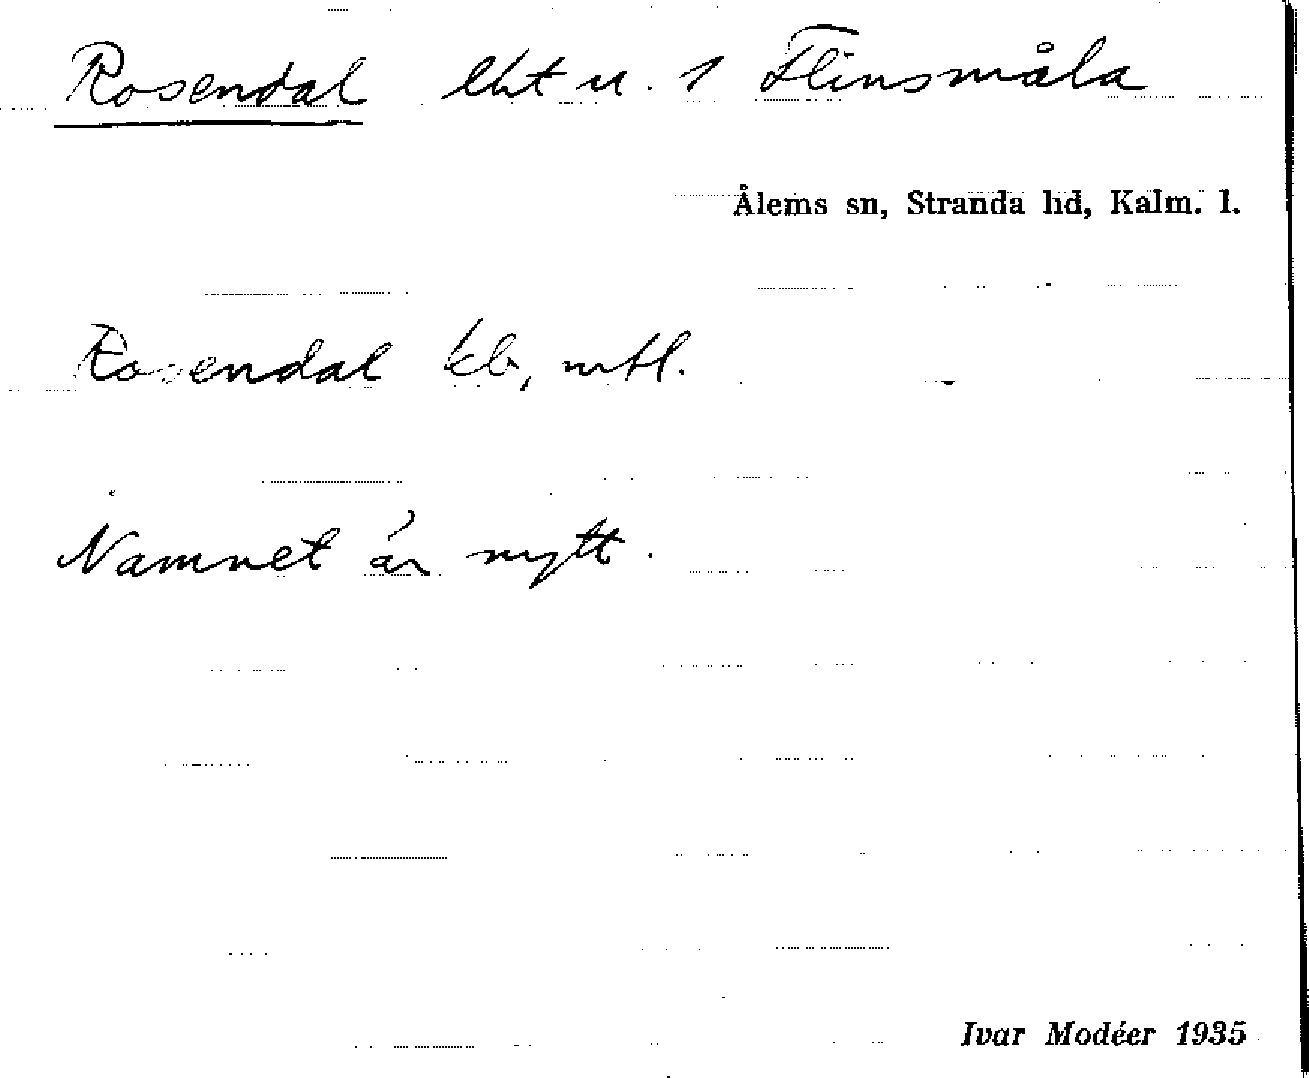 Rosendal lht u. 1 Flinsmåla
Ålems sn, Stranda hd, Kalm. l.
Rosendal kb, mtl.
Namnet är nytt.
Ivar Modéer 1935